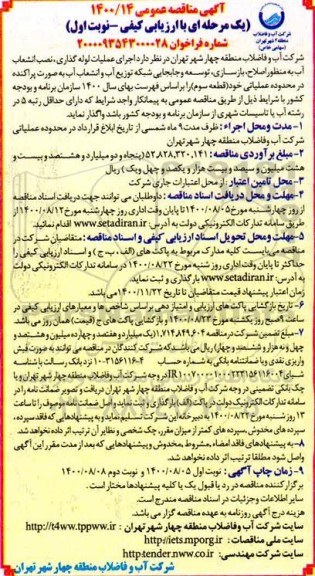 آگهی مناقصه عمومی ۱۴۰۰/۱۴
(یک مرحله ای با ارزیابی کیفی – نوبت اول)
شماره فراخوان ۲۰۰۰۰۹۳۵۴۳۰۰۰۰۲۸
شرکت آب و فاضلاب
منطقه ۴ شهر تهران
(سهامی خاص)
شرکت آب و فاضلاب منطقه چهار شهر تهران در نظر دارد اجرای عملیات لوله گذاری، نصب انشعاب
آب به منظور اصلاح، بازسازی، توسعه و جابجایی شبکه توزیع آب و انشعاب آب به صورت پراکنده
در محدوده عملیاتی خود (قطعه سوم) را بر اساس فهرست بهای سال ۱۴۰۰ سازمان برنامه و بودجه
کشور با شرایط ذیل از طریق مناقصه عمومی به پیمانکار واجد شرایط که دارای حداقل رتبه ۵ در
رشته آب یا تاسیسات شهری از سازمان برنامه و بودجه کشور باشد واگذار نماید.
۱– مدت و محل اجراء: ظرف مدت ۹ ماه شمسی از تاریخ ابلاغ قرارداد در محدوده عملیاتی
۲– مبلغ برآوردی مناقصه: ۵۲٫۸۲۸٫۳۲۰٫۱۴۱ (پنجاه و دو میلیارد و هشتصد و بیست و
هشت میلیون و سیصد و بیست هزار و یکصد و چهل ویک) ریال
۳– محل تامین اعتبار: از محل اعتبارات جاری شرکت
۴– مهلت و محل دریافت اسناد مناقصه: داوطلبان می توانند جهت دریافت اسناد مناقصه
از روز چهارشنبه مورخ ۱۴۰۰/۰۸/۰۵ تا پایان وقت اداری روز چهارشنبه مورخ ۱۴۰۰/۰۸/۱۲ از
طریق سامانه تدارکات الکترونیکی دولت به آدرس: www.setadiran.ir اقدام نمایند.
۵– مهلت ومحل تحویل اسناد ارزیابی کیفی و اسناد مناقصه: متقاضیان شرکت در
مناقصه می بایست کلیه مدارک مربوط به پاکت های (الف، ب، ج) و اسناد ارزیابی کیفی را
حداکثر تا پایان وقت اداری روز شنبه مورخ ۱۴۰۰/۰۸/۲۲ در سامانه تدارکات الکترونیکی دولت
به آدرس: www.setadiran.ir بارگذاری و ثبت نماید.
زمان اعتبار پیشنهاد قیمت متقاضیان تا تاریخ ۱۴۰۰/۱۱/۲۲ می باشد.
۶– تاریخ بازگشایی پاکت های ارزیابی و امتیاز دهی براساس شاخص ها و معیارهای ارزیابی کیفی در
ساعت ۹ صبح روز یکشنبه مورخ ۱۴۰۰/۰۸/۲۳ و بازگشایی پاکت های ج (قیمت) همان روز می باشد
۷– مبلغ تضمین شرکت در مناقصه ۱٫۷۱۴٫۸۴۹٫۶۰۴ (یک میلیارد و هفتصد و چهارده میلیون و هشتصد و
چهل و نه هزار و ششصد و چهار) ریال می باشد که شرکت کنندگان در مناقصه می توانند به صورت فیش
واریزی نقدی و یا ضمانتنامه بانکی
۱۳ روز شنبه مورخ ۱۴۰۰/۰۸/۲۲ به دبیرخانه این شرکت تسلیم نمایند و به پیشنهادهای که فاقد سپرده،
سپرده های مخدوش، سپرده های کمتر از میزان مقرر، چک شخصی و نظایر آن ترتیب اثر داده نخواهد شد.
۸– به پیشنهادهای فاقد امضاء، مشروط، مخدوش و پیشنهادهایی که بعد از مدت مقرر این آگهی
واصل شود مطلقا ترتیب اثر داده نخواهد شد.
۹– زمان چاپ آگهی: نوبت اول ۱۴۰۰/۰۸/۰۵ و نوبت دوم ۱۴۰۰/۰۸/۰۸
برگزار کننده مناقصه در رد یا قبول یک یا کلیه پیشنهادها مختار است.
سایر اطلاعات وجزئیات در اسناد مناقصه مندرج است.
هزینه درج آگهی روزنامه به عهده مناقصه گزار می باشد.
سایت شرکت آب و فاضلاب منطقه چهار شهر تهران: http://t4ww.tppww.ir
سایت ملی مناقصات: http://iets.mporg.ir
سایت شرکت مهندسی: http:tender.nww.co.ir
شرکت آب و فاضلاب منطقه چهار شهر تهران